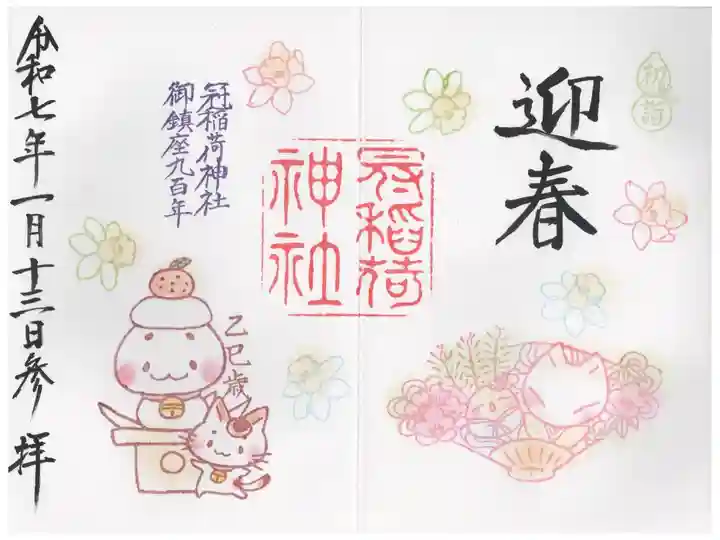 迎春
初詣
冠稲荷
神社
冠稲荷神社
御鎮座九百年
乙巳歳
令和七年一月十三日参拝